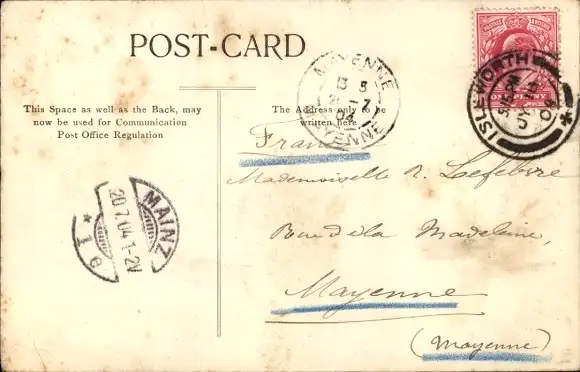 POST-CARD
This Space as well as the Back, may
now be used for Communication
Post Office Regulation
The Address only to be
written here
France
Mademoiselle R. Lefebvre
Rue de la Madeleine,
Mayenne
(Mayenne)
MAYENNE
7
04
MAYENNE
ISLEWORTH
JY
04
ONE PENNY
MAINZ
20.7.04.1-2N
* 1 e